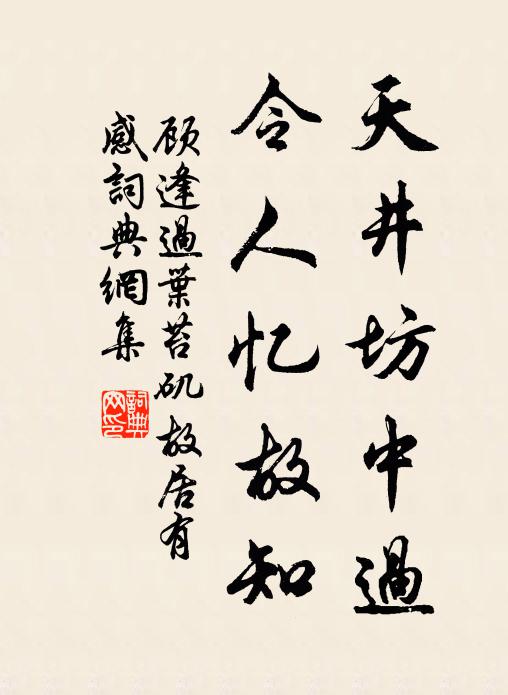 天井坊中過
令人忆故知
顾逢過葉苔矶故居有
感詞典網集
詞典
网印